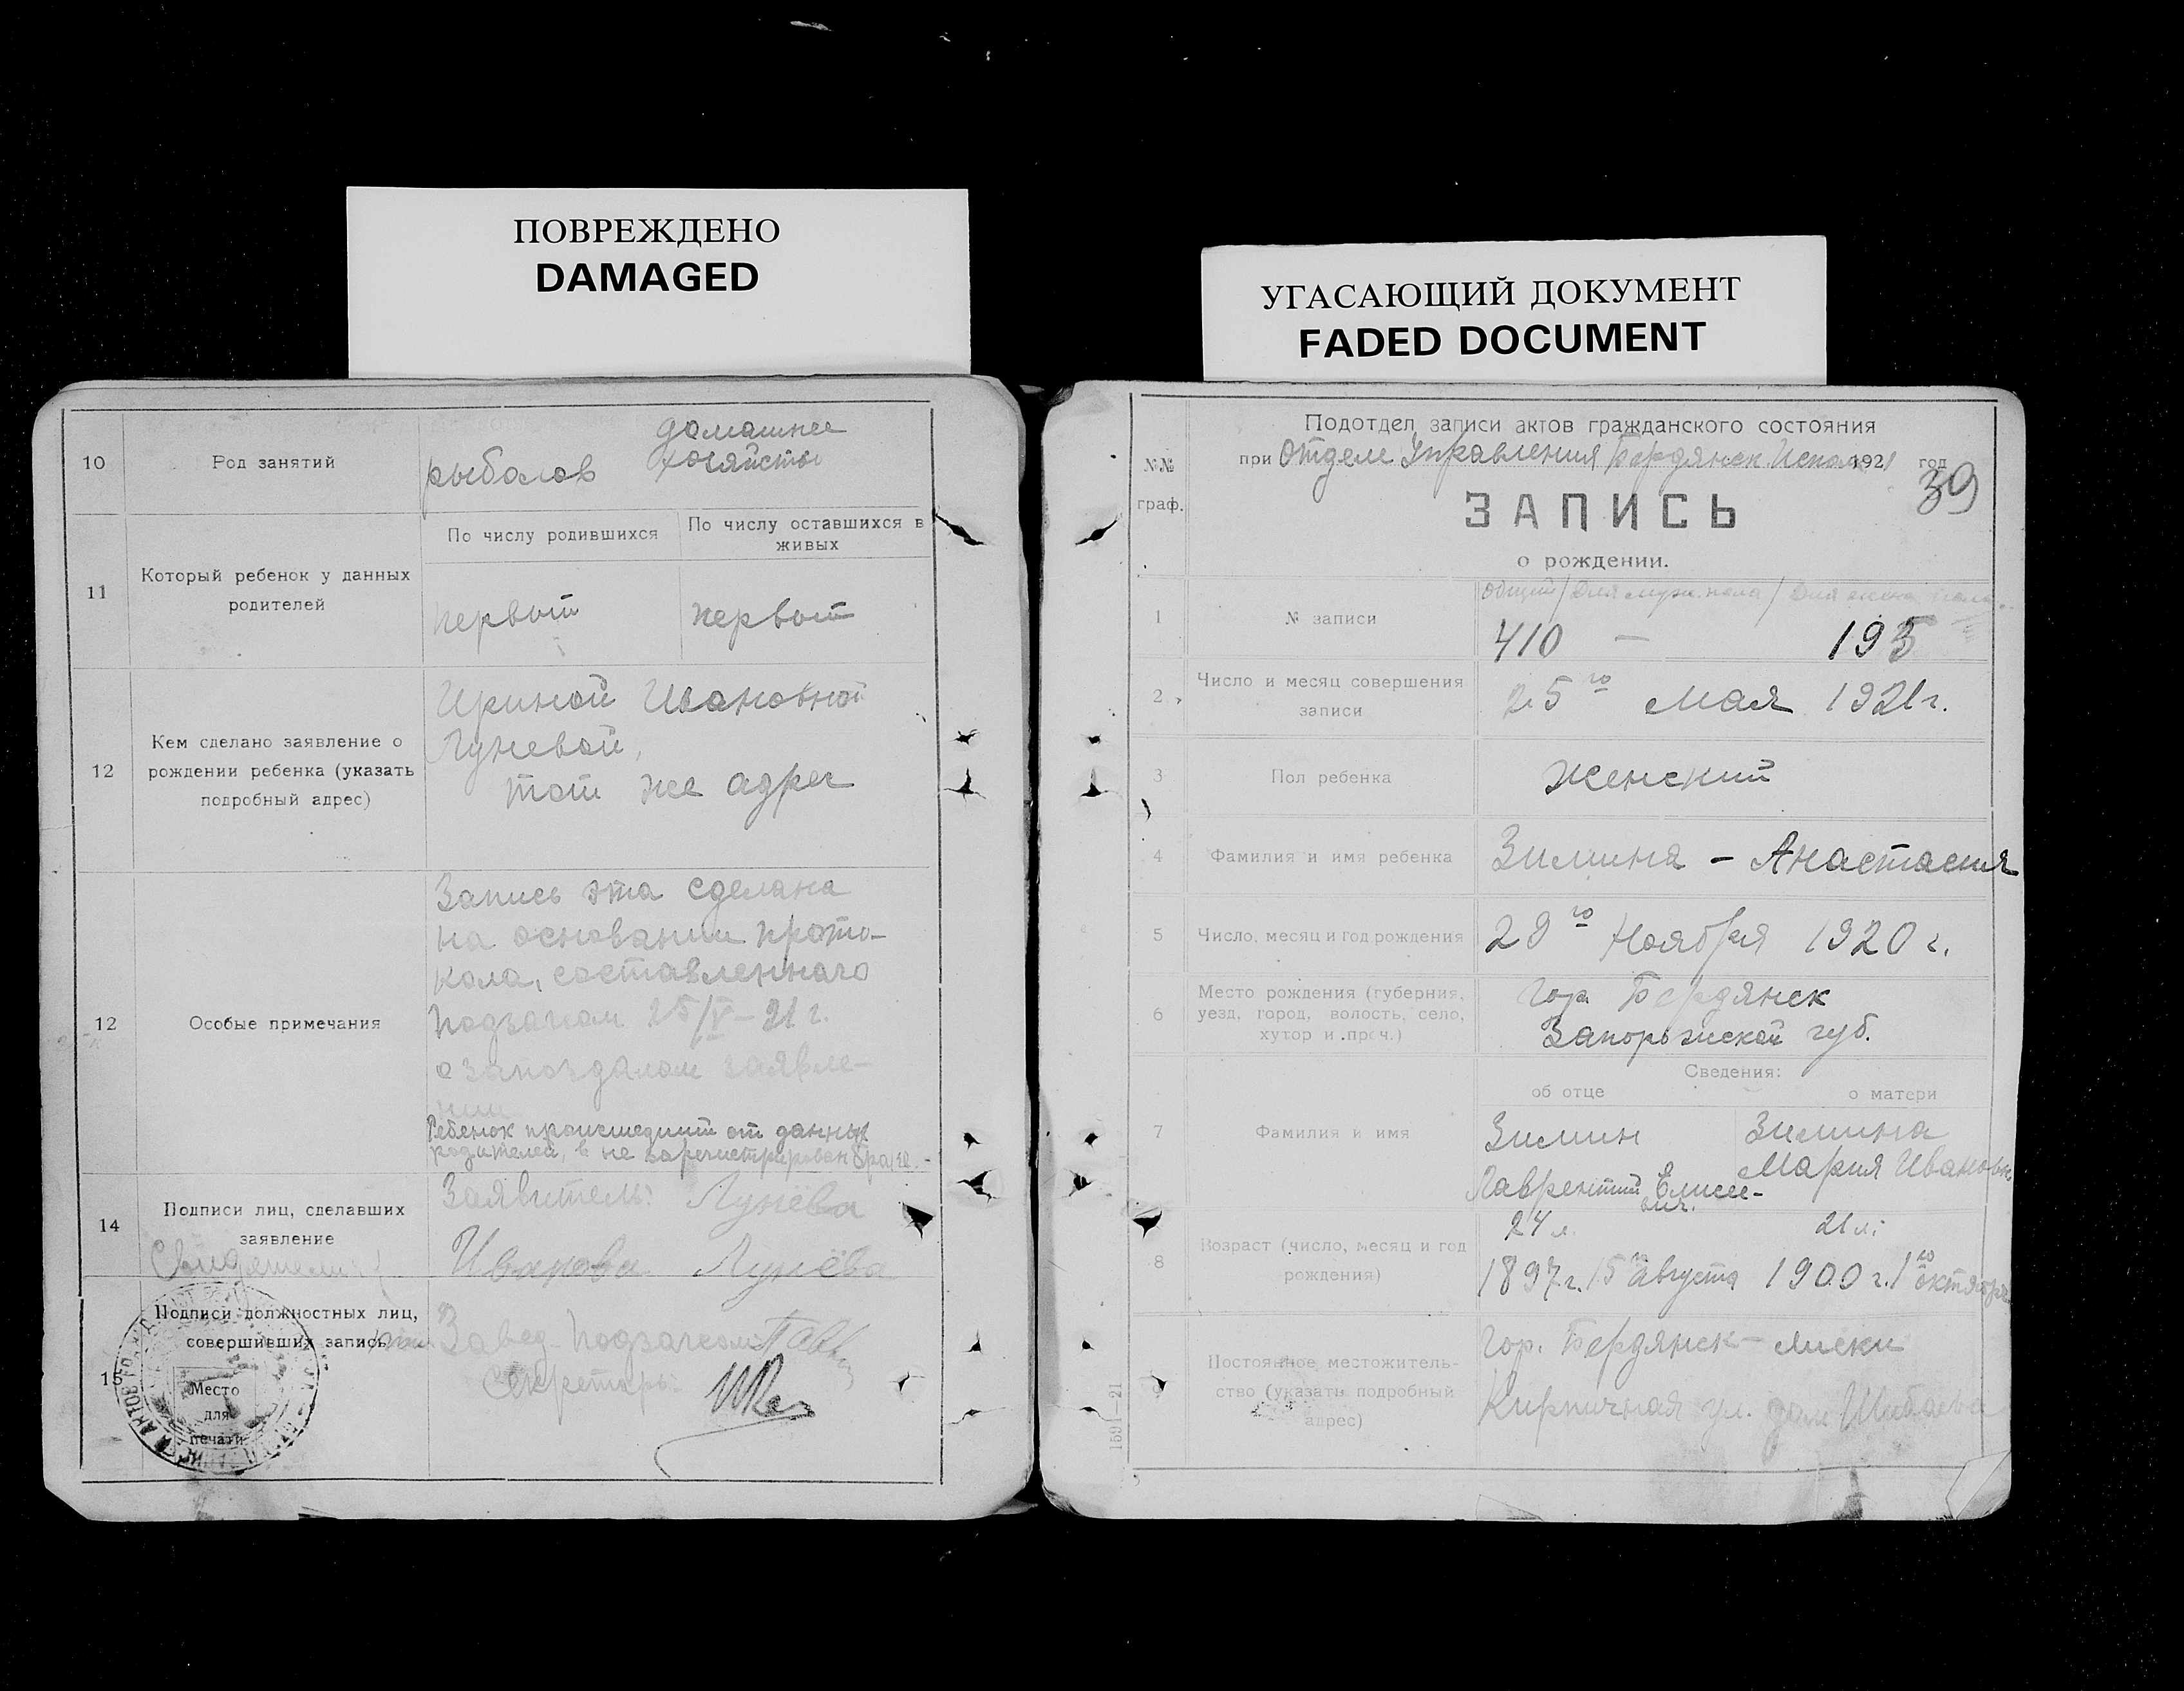 ПОВРЕЖДЕНО
DAMAGED
10
Род занятий
рыболов
домашнее
хозяйство
11
Который ребенок у данных
родителей
По числу родившихся
По числу оставшихся в
живых
первый
первый
12
Кем сделано заявление о
рождении ребенка (указать
подробный адрес)
Ириной Ивановной
Луневой,
тот же адрес
12
Особые примечания
Запись эта сделана
на основании прото-
кола, составленного
подзагсом 25/V-21 г.
о запоздалом заявле-
нии
Ребенок происшедший от данных
родителей, в не зарегистрирован браке.-
14
Подписи лиц, сделавших
заявление
Свидетели:
Заявитель: Лунёва
Иванова Лунёва
15
Подписи должностных лиц,
совершивших запись
Место
для
печати
Завед. подзагсом
Секретарь:
УГАСАЮЩИЙ ДОКУМЕНТ
FADED DOCUMENT
№№
граф.
Подотдел записи актов гражданского состояния
при Отделе Управления Бердянск. Исполк 1921 год
39
ЗАПИСЬ
о рождении.
1
№ записи
общий/Для муж. пола/Для женск пола
410 — 195
2
Число и месяц совершения
записи
25го Мая 1921 г.
3
Пол ребенка
женский
4
Фамилия и имя ребенка
Зимина - Анастасия
5
Число, месяц и год рождения
29го Ноября 1920 г.
6
Место рождения (губерния,
уезд, город, волость, село,
хутор и проч.)
гор. Бердянск
Запорожской губ.
Сведения:
об отце
о матери
7
Фамилия и имя
Зимин
Лаврентий Елисее-
вич.
Зимина
Мария Ивановн.
8
Возраст (число, месяц и год
рождения)
24 л.
1897 г. 15 августа
21 л.
1900 г. 1го октября
9
Постоянное местожитель-
ство (указать подробный
адрес)
гор. Бердянск - лиски
Кирпичная ул. дом Шибаева
1591—21